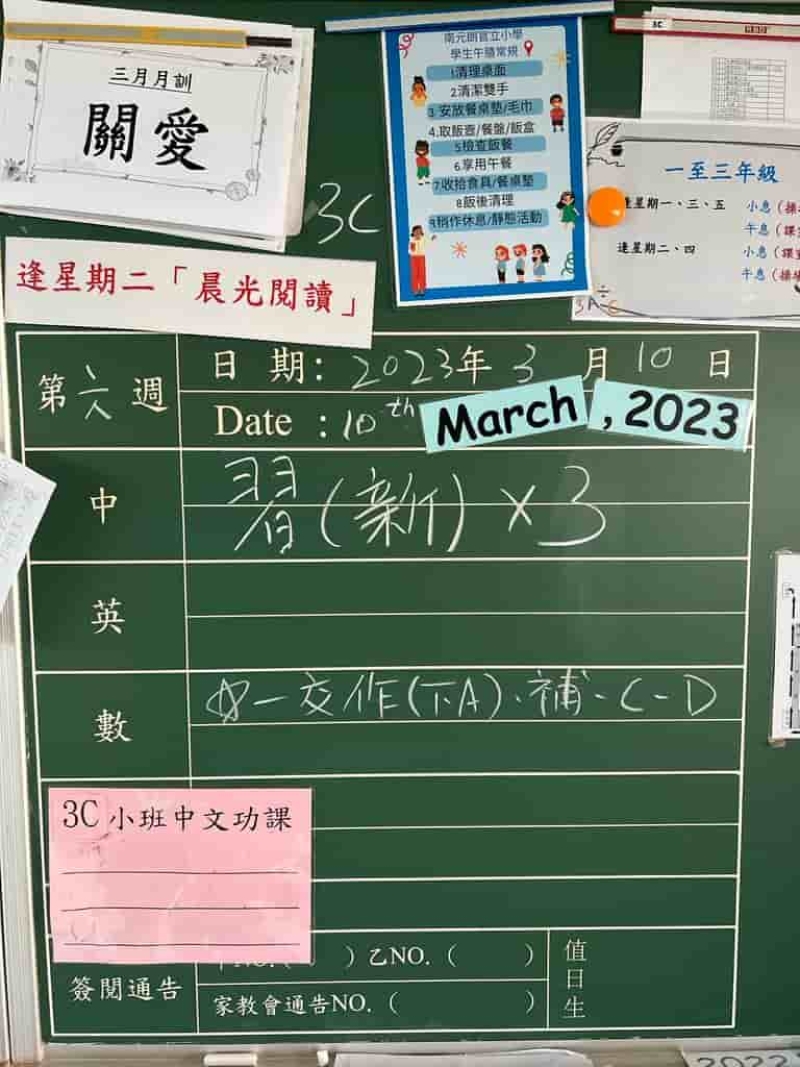 三月月訓
關愛
3C
南元朗官立小學
學生午膳常規
1清理桌面
2.清潔雙手
3.安放餐桌墊/毛巾
4.取飯壼/餐盤/飯盒
5檢查飯餐
6.享用午餐
7.收拾食具/餐桌墊
8飯後清理
9稍作休息/靜態活動
3C
一至三年級
逢星期一、三、五
小息（操
午息（課
逢星期二、四
小息（課
午息（操場
逢星期二「晨光閱讀」
第六週
日期：2023年3月10日
Date：10th March, 2023
中
習(新)×3
英
數
☆－交作(下A)、補－C－D
3C小班中文功課
)乙NO.( )
簽閱通告
家教會通告NO.( )
值日生
2022